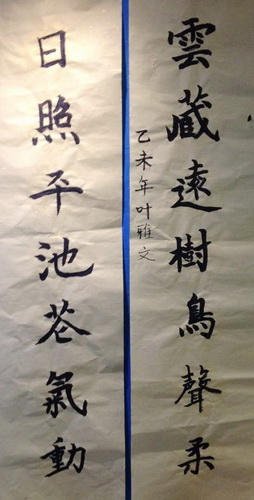 雲藏遠樹鳥聲柔
乙未年叶雅文
日照平池苍氣動